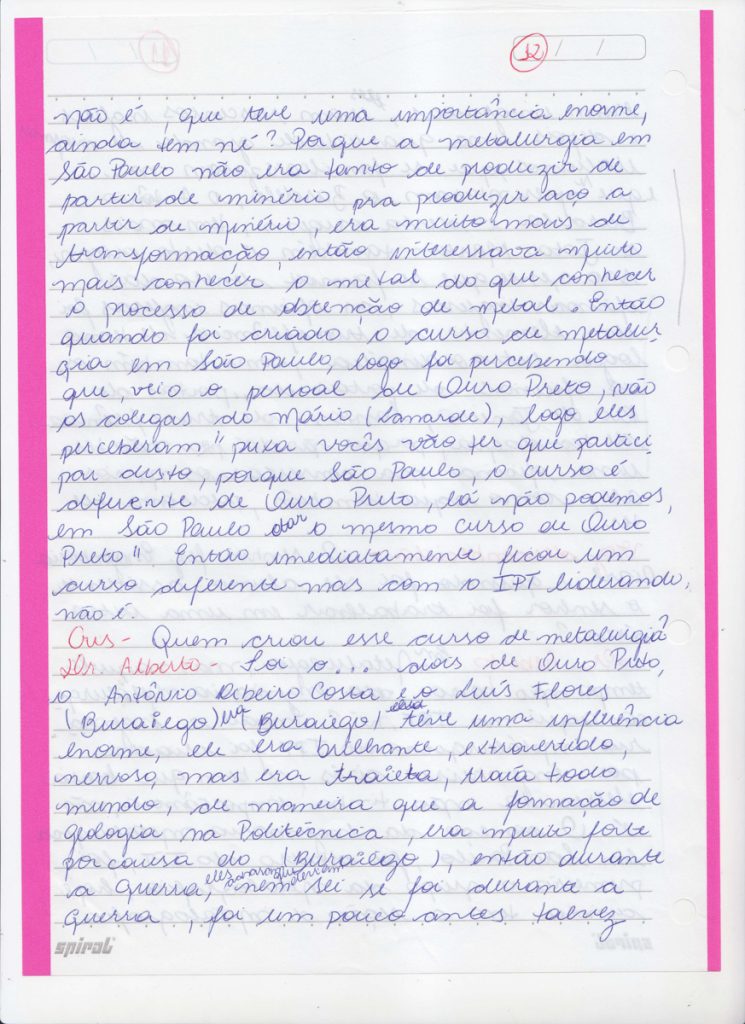 12 / /
não é, que teve uma importância enorme,
ainda tem né? Porque a metalurgia em
São Paulo não era tanto de produzir de
partir de minério pra produzir aço a
partir de minério, era muito mais de
transformação, então interessava muito
mais conhecer o metal do que conhecer
o processo de obtenção de metal. Então
quando foi criado o curso de metalur-
gia em São Paulo, logo foi percebendo
que, veio o pessoal de Ouro Preto, não
os colegas do Mário (Lanarde), logo eles
perceberam "puxa vocês vão ter que partici
par disto, porque São Paulo, o curso é
diferente de Ouro Preto, lá não podemos,
em São Paulo dar o mesmo curso de Ouro
Preto". Então imediatamente ficou um
curso diferente mas com o IPT liderando,
não é.
Cris - Quem criou esse curso de metalurgia?
Dr. Alberto - Foi o... dois de Ouro Preto,
o Antônio Ribeiro Costa e o Luís Flores
(Buraiego) (Buraiego) teve uma influência
enorme, ele era brilhante, extrovertido,
nervoso, mas era traieta, traía todo
mundo, de maneira que a formação de
geologia na Politécnica, era muito forte
por causa do (Buraiego), então durante
a Guerra, eles nem sei se foi durante a
Guerra, foi um pouco antes talvez
spiral